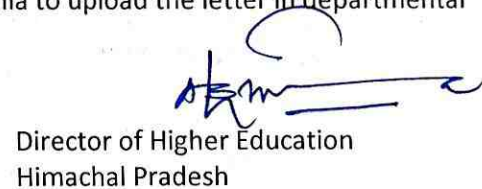 to upload the letter in departmental
Director of Higher Education
Himachal Pradesh